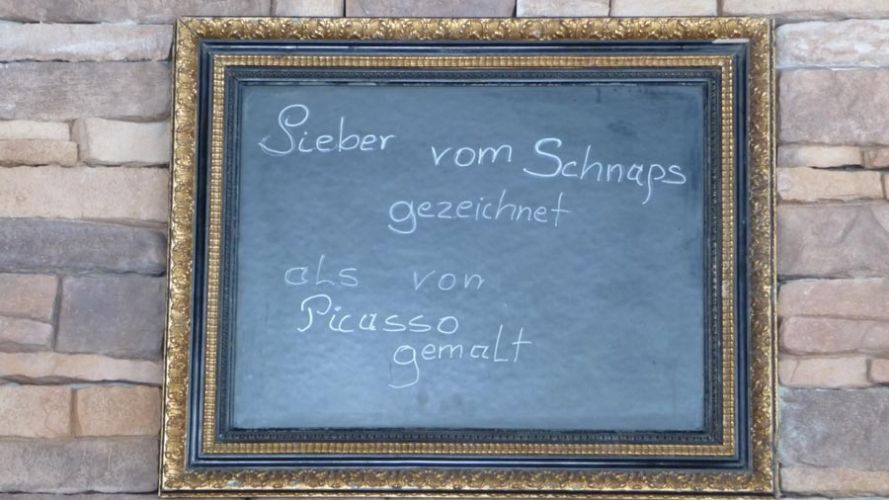 Lieber vom Schnaps
gezeichnet
als von
Picasso
gemalt